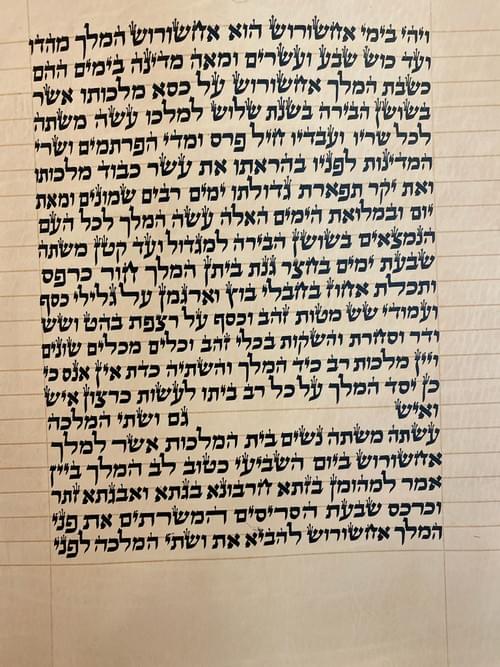 ויהי בימי אחשורוש הוא אחשורוש המלך מהדו
ועד כוש שבע ועשרים ומאה מדינה בימים ההם
כשבת המלך אחשורוש על כסא מלכותו אשר
בשושן הבירה בשנת שלוש למלכו עשה משתה
לכל שריו ועבדיו חיל פרס ומדי הפרתמים ושרי
המדינות לפניו בהראתו את עשר כבוד מלכותו
ואת יקר תפארת גדולתו ימים רבים שמונים ומאת
יום ובמלואת הימים האלה עשה המלך לכל העם
הנמצאים בשושן הבירה למגדול ועד קטן משתה
שבעת ימים בחצר גנת ביתן המלך חור כרפס
ותכלת אחוז בחבלי בוץ וארגמן על גלילי כסף
ועמודי שש מטות זהב וכסף על רצפת בהט ושש
ודר וסחרת והשקות בכלי זהב וכלים מכלים שונים
ויין מלכות רב כיד המלך והשתיה כדת אין אנס כי
כן יסד המלך על כל רב ביתו לעשות כרצון איש
ואיש גם ושתי המלכה
עשתה משתה נשים בית המלכות אשר למלך
אחשורוש ביום השביעי כטוב לב המלך ביין
אמר למהומן בזתא חרבונא בגתא ואבגתא זתר
וכרכס שבעת הסריסים המשרתים את פני
המלך אחשורוש להביא את ושתי המלכה לפני